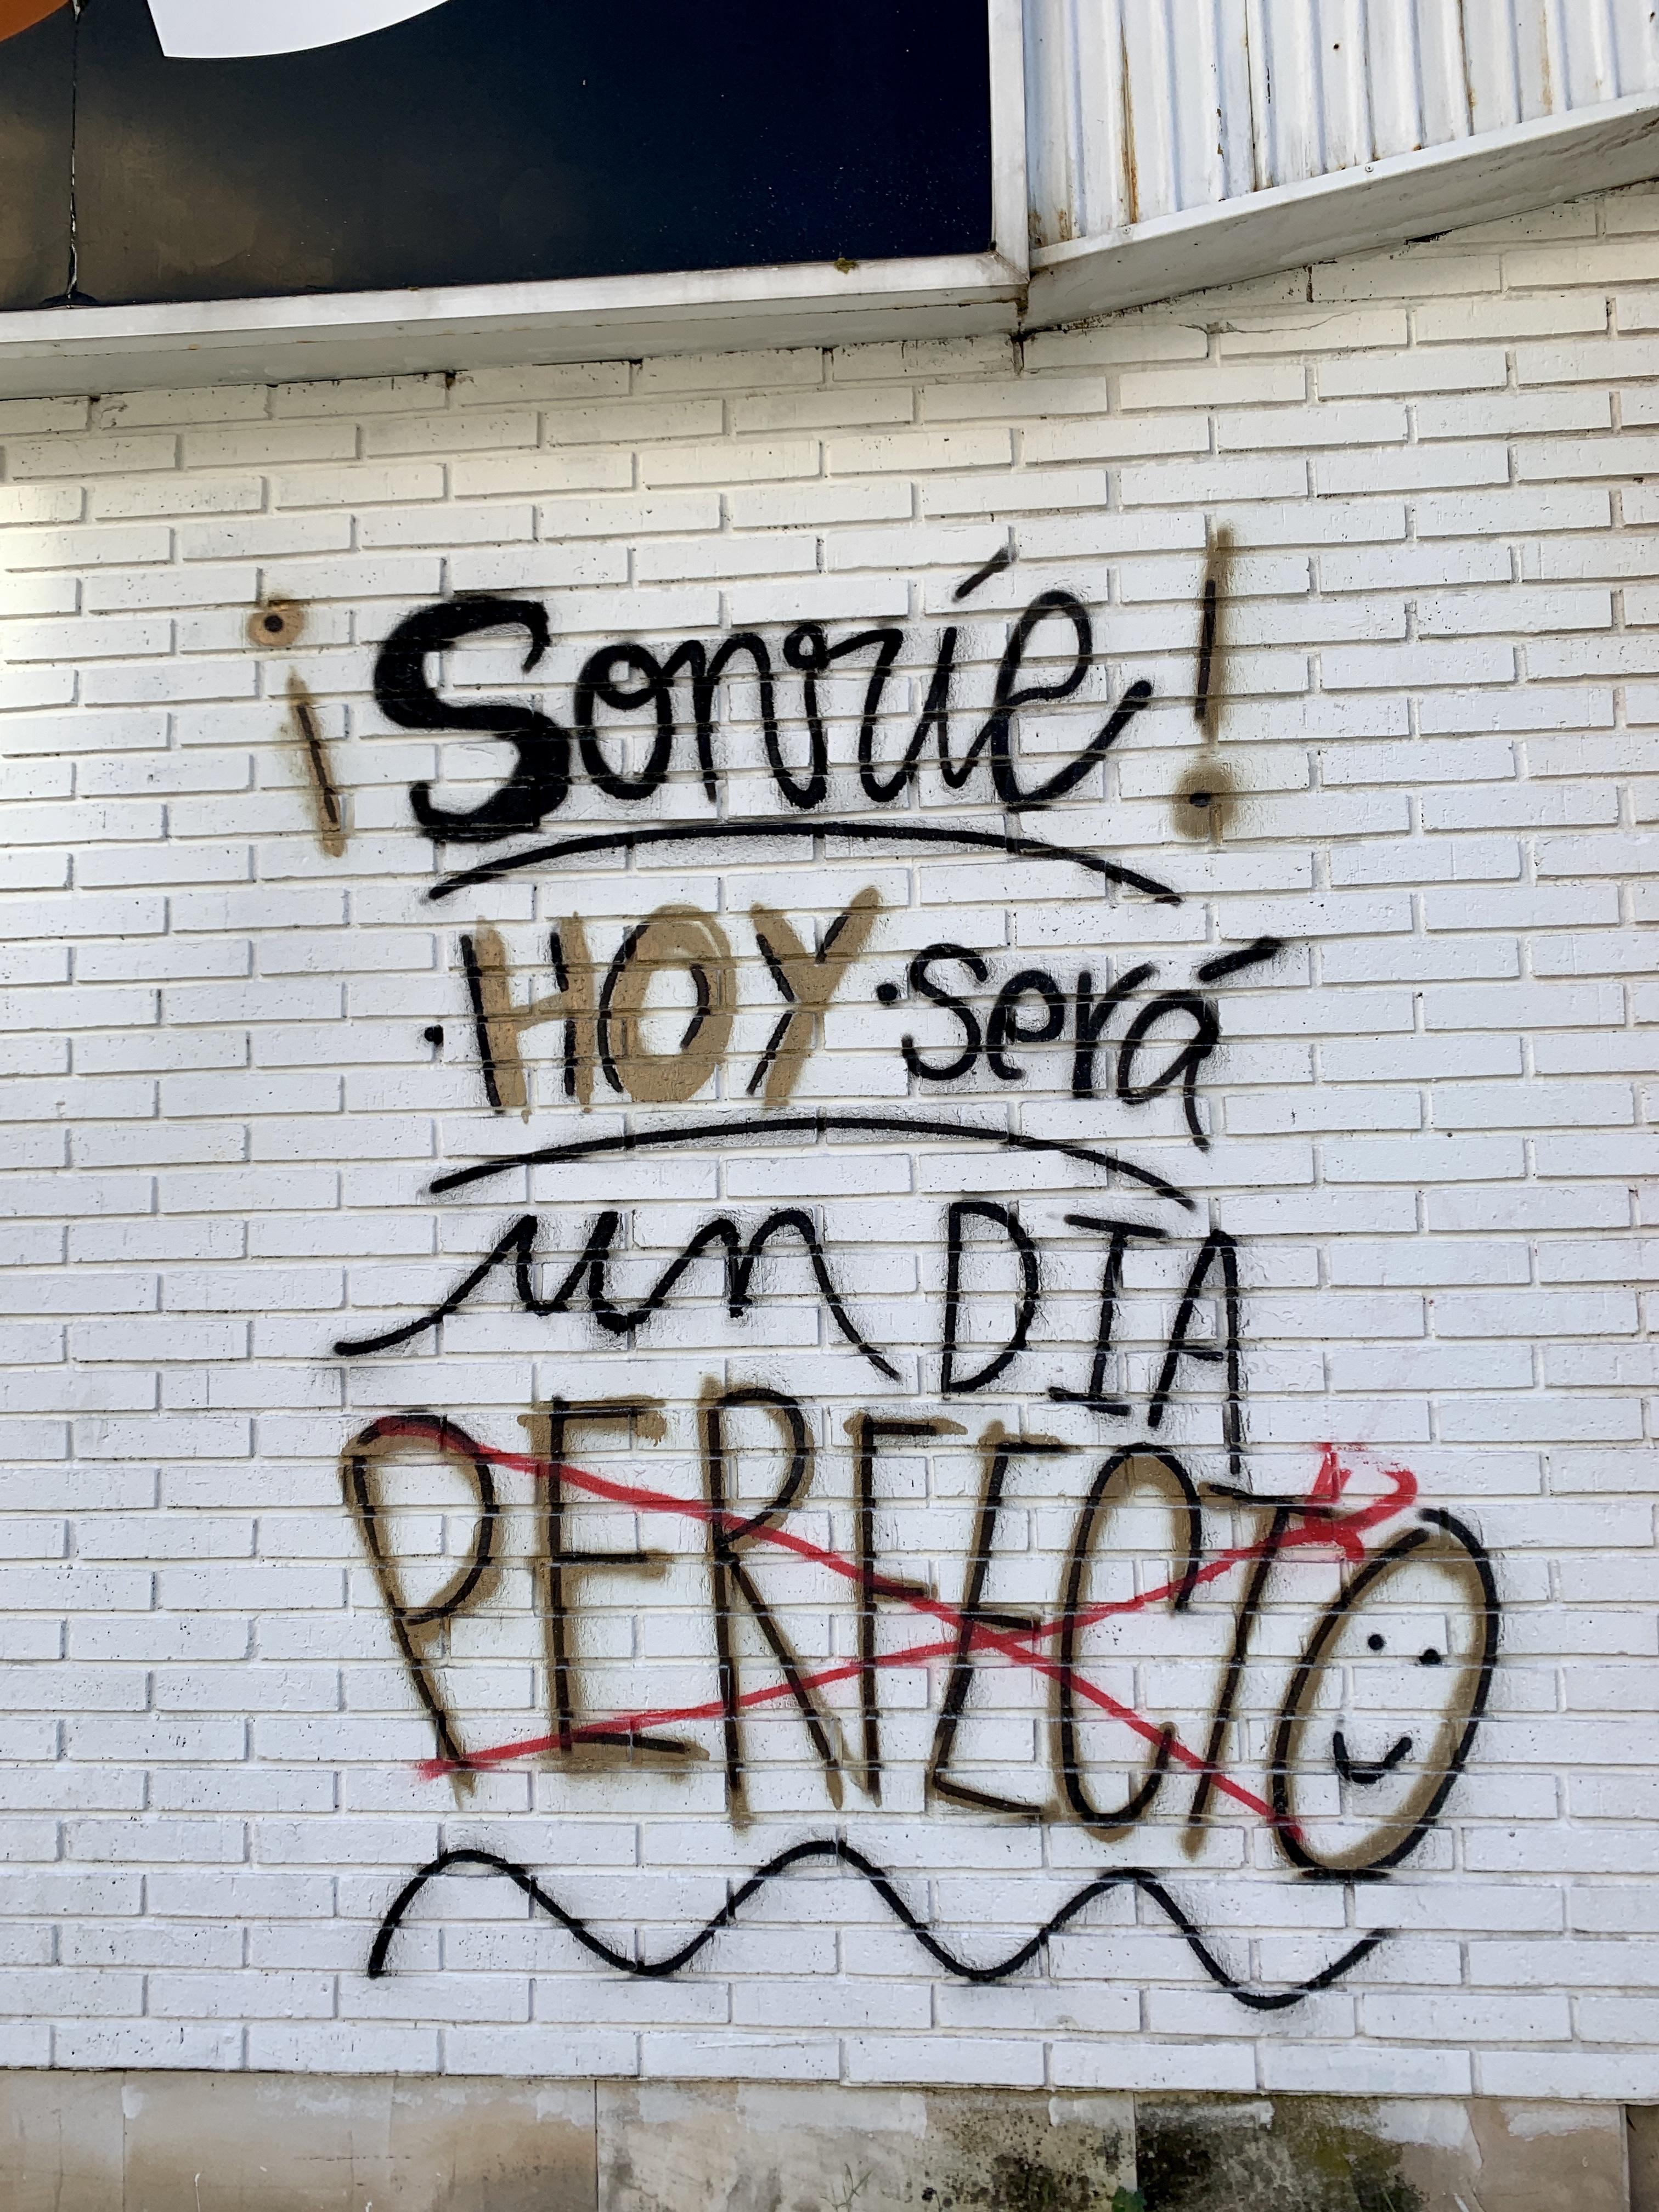 ¡Sonríe!
·HOY·será
un DIA
PERFECTO